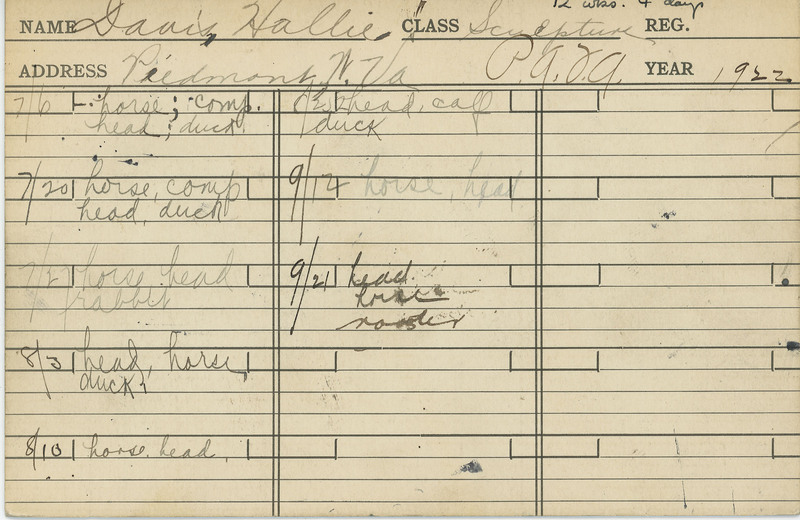 12 wks. 4 days
NAME Davis, Hallie CLASS Sculpture REG.
ADDRESS Piedmont, W. Va P.A.F.A. YEAR 1922
7/6 horse; comp.
head; duck
7/20 horse, comp
head, duck
7/27 horse head
rabbit
8/3 head, horse,
duck
8/10 horse, head,
head, calf
duck
9/12 horse, head
9/21 head
horse
rooster